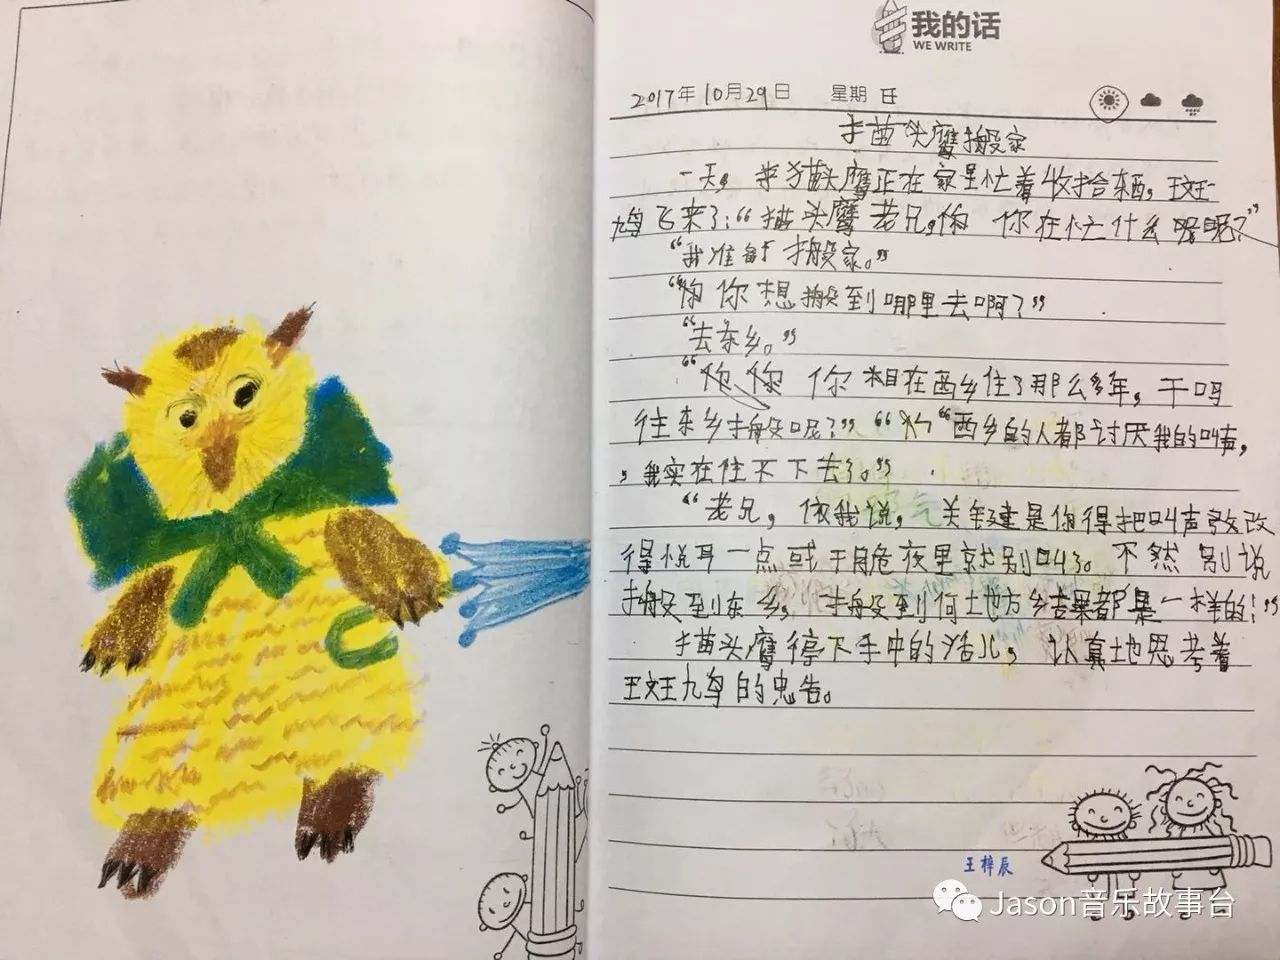 我的话
WE WRITE
2017年10月29日 星期日
猫头鹰搬家
一天，猫头鹰正在家里忙着收拾东西，斑
鸠飞来了：“猫头鹰老兄，你在忙什么呢？”
“我准备搬家。”
“你想搬到哪里去啊？”
“去东乡。”
“你 你在西乡住了那么多年，干吗
往东乡搬呢？”“西乡的人都讨厌我的叫声，
，我实在住不下去了。”
“老兄，依我说，关键是你得把叫声改
得悦耳一点或于脆夜里就别叫了。不然别说
搬到东乡，搬到何地方都是一样的！”
猫头鹰停下手中的活儿，认真地思考着
斑鸠的忠告。
王梓辰
Jason音乐故事台